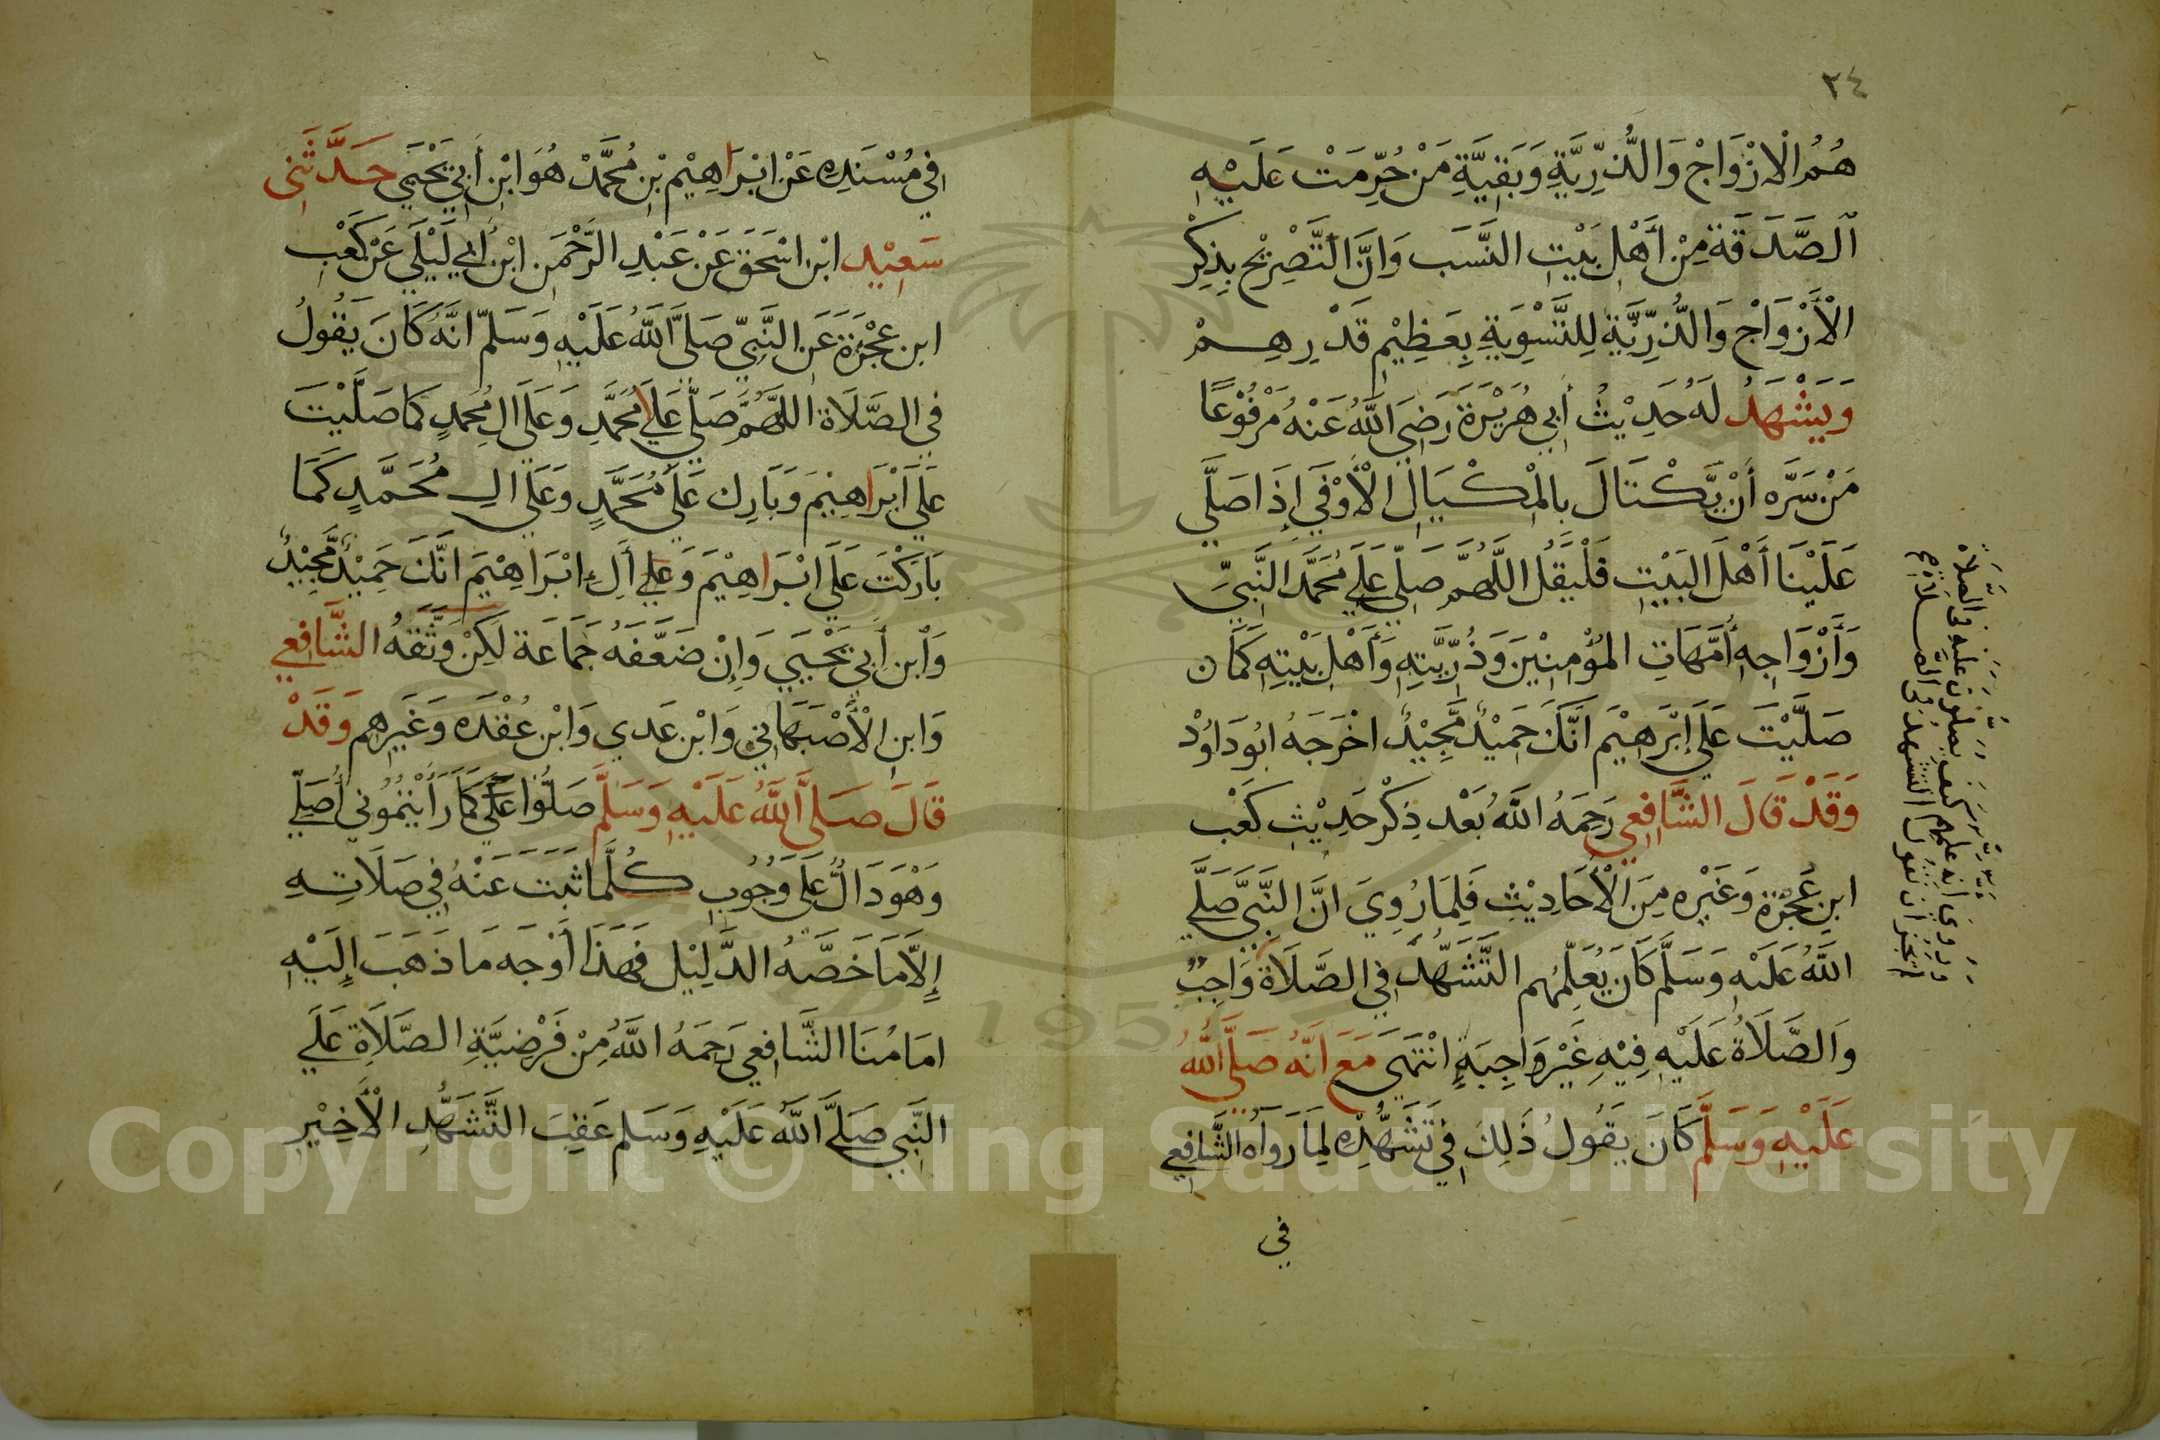 ٢٤
هُمُ الْازْوَاجْ وَالذُّرِّيَّةِ وَبَقِيَّةِ مَنْ حُرِّمَتْ عَلَيْهِ
الصَّدَقَةَ مِنْ أَهْلِ بَيْتِ النَّسَب وَانَّ التَّصْرِيْح بِذِكْرِ
الْأَزْوَاجْ وَالذُّرِّيَّة لِلتَّسْوِيَةِ بِعَظِيْمِ قَدْرِهِمْ
وَيَشْهَدُ لَهُ حَدِيْثُ أَبِي هُرَيْرَةَ رَضِيَ اللَّهُ عَنْهُ مَرْفُوْعًا
مَنْ سَرَّه أَنْ يَّكْتَالَ بِالْمِكْيَالِ الْأَوْفَي إِذَا صَلَّي
عَلَيْنَا أَهْلَ البَيْتِ فَلْيَقُلْ اللَّهُمَّ صَلِّي عَلَي مُحَمَّد النَّبِيِّ
وَأَزْوَاجِهِ أُمَّهَاتِ المُؤْمِنِيْنَ وَذُرِّيَّتِهِ وَأَهْلِ بَيْتِهِ كَمَا ن
صَلَّيْتَ عَلَي إِبْرَهِيْمَ انَّكَ حَمِيْدٌ مَّجِيْدٌ اخْرَجَهُ ابُودَاوُدْ
وَقَدْ قَالَ الشَّافِعِي رَحِمَهُ اللَّهُ بَعْد ذِكْر حَدِيْثِ كَعْب
ابنِ عُجْرَة وَغَيْرِه مِنَ الْأَحَادِيْثِ فَلِمَا رُوِيَ انَّ النَّبِيَّ صَلَّي
اللَّهُ عَلَيْهِ وَسَلَّم كَانَ يُعَلِّمُهُم التَّشَهُّدَ فِي الصَّلَاة وَاجِبٌ
وَالصَّلَاةُ عَلَيْهِ فِيْهِ غَيْرِ وَاجِبَةٍ انْتَهَي مَعَ انَّهُ صَلَّي اللَّهُ
عَلَيْهِ وَسَلَّمَ كَانَ يَقُولُ ذَلِكَ فِي تَشَهُّدِهِ لِمَا رَوَاه الشَّافِعِي
في
وروي انه علمهم كيف يصلون عليه في الصلاة
لم يجز ان نقول التشهد في الصلاة
في مُسْنَدِهِ عَنْ ابْرَاهِيْمِ بْنِ مُحَمَّدْ هُوَ ابْنِ أَبِي يَحْيَي حَدَّثَنِي
سَعِيْدِ ابْن اسْحَقَ عَنْ عَبْدِ الرَّحْمَنِ ابْنِ أَبِي لَيْلَي عَنْ كَعْب
ابن عُجْرَةَ عَنِ النَّبِيّ صَلَّي اللَّهُ عَلَيْهِ وَسَلمّ انَّهُ كَانَ يَقُولُ
في الصَّلَاة اللَّهُمَّ صَلِّي عَلَي مُحَمَّدٍ وَعَلَي الِ مُحَمَّدٍ كَمَا صَلَّيْتَ
عَلَي ابْرَاهِيْمَ وَبَارِك عَلَي مُحَمَّدٍ وَعَلَي الِ مُحَمَّدٍ كَمَا
بَارَكْتَ عَلَي ابْرَاهِيْمَ وَعَلَي أَلِ ابْرَاهِيْمَ انَّكَ حَمِيْدٌ مَّجِيْدٌ
وَابْن أَبِي يَحْيَي وَإِنْ ضَعَّفَهُ جَمَاعَة لَكِنْ وَثَّقَهُ الشَّافِعِي
وَابنِ الْأَصْبَهَانِي وَابْن عَدي وَابْن عُقْدَه وَغَيرهم وَقَدْ
قَالَ صَلَّي اللَّهُ عَلَيْهِ وَسَلَّمَ صَلُّوا عَلَيَّ كَمَا رَأَيْتُمُونِي أُصَلِّي
وَهْوَ دَالٌّ عَلَي وَجُوبِ كُلَّمَا ثَبَتَ عَنْهُ فِي صَلَاتِهِ
إِلَّا مَا خَصَّهُ الدَّلِيْل فَهَذَا أَوْجَه مَا ذَهَبَ إِلَيْهِ
امَامُنَا الشَّافِعِي رَحِمَهُ اللَّهُ مِنْ فَرْضِيَّةِ الصَّلَاةِ عَلَي
النَّبِي صَلَّي اللَّهُ عَلَيْهِ وَسَلم عَقِبَ التَّشَهُّدِ الْأَخِيْر
Copyright © King Saud University
1957